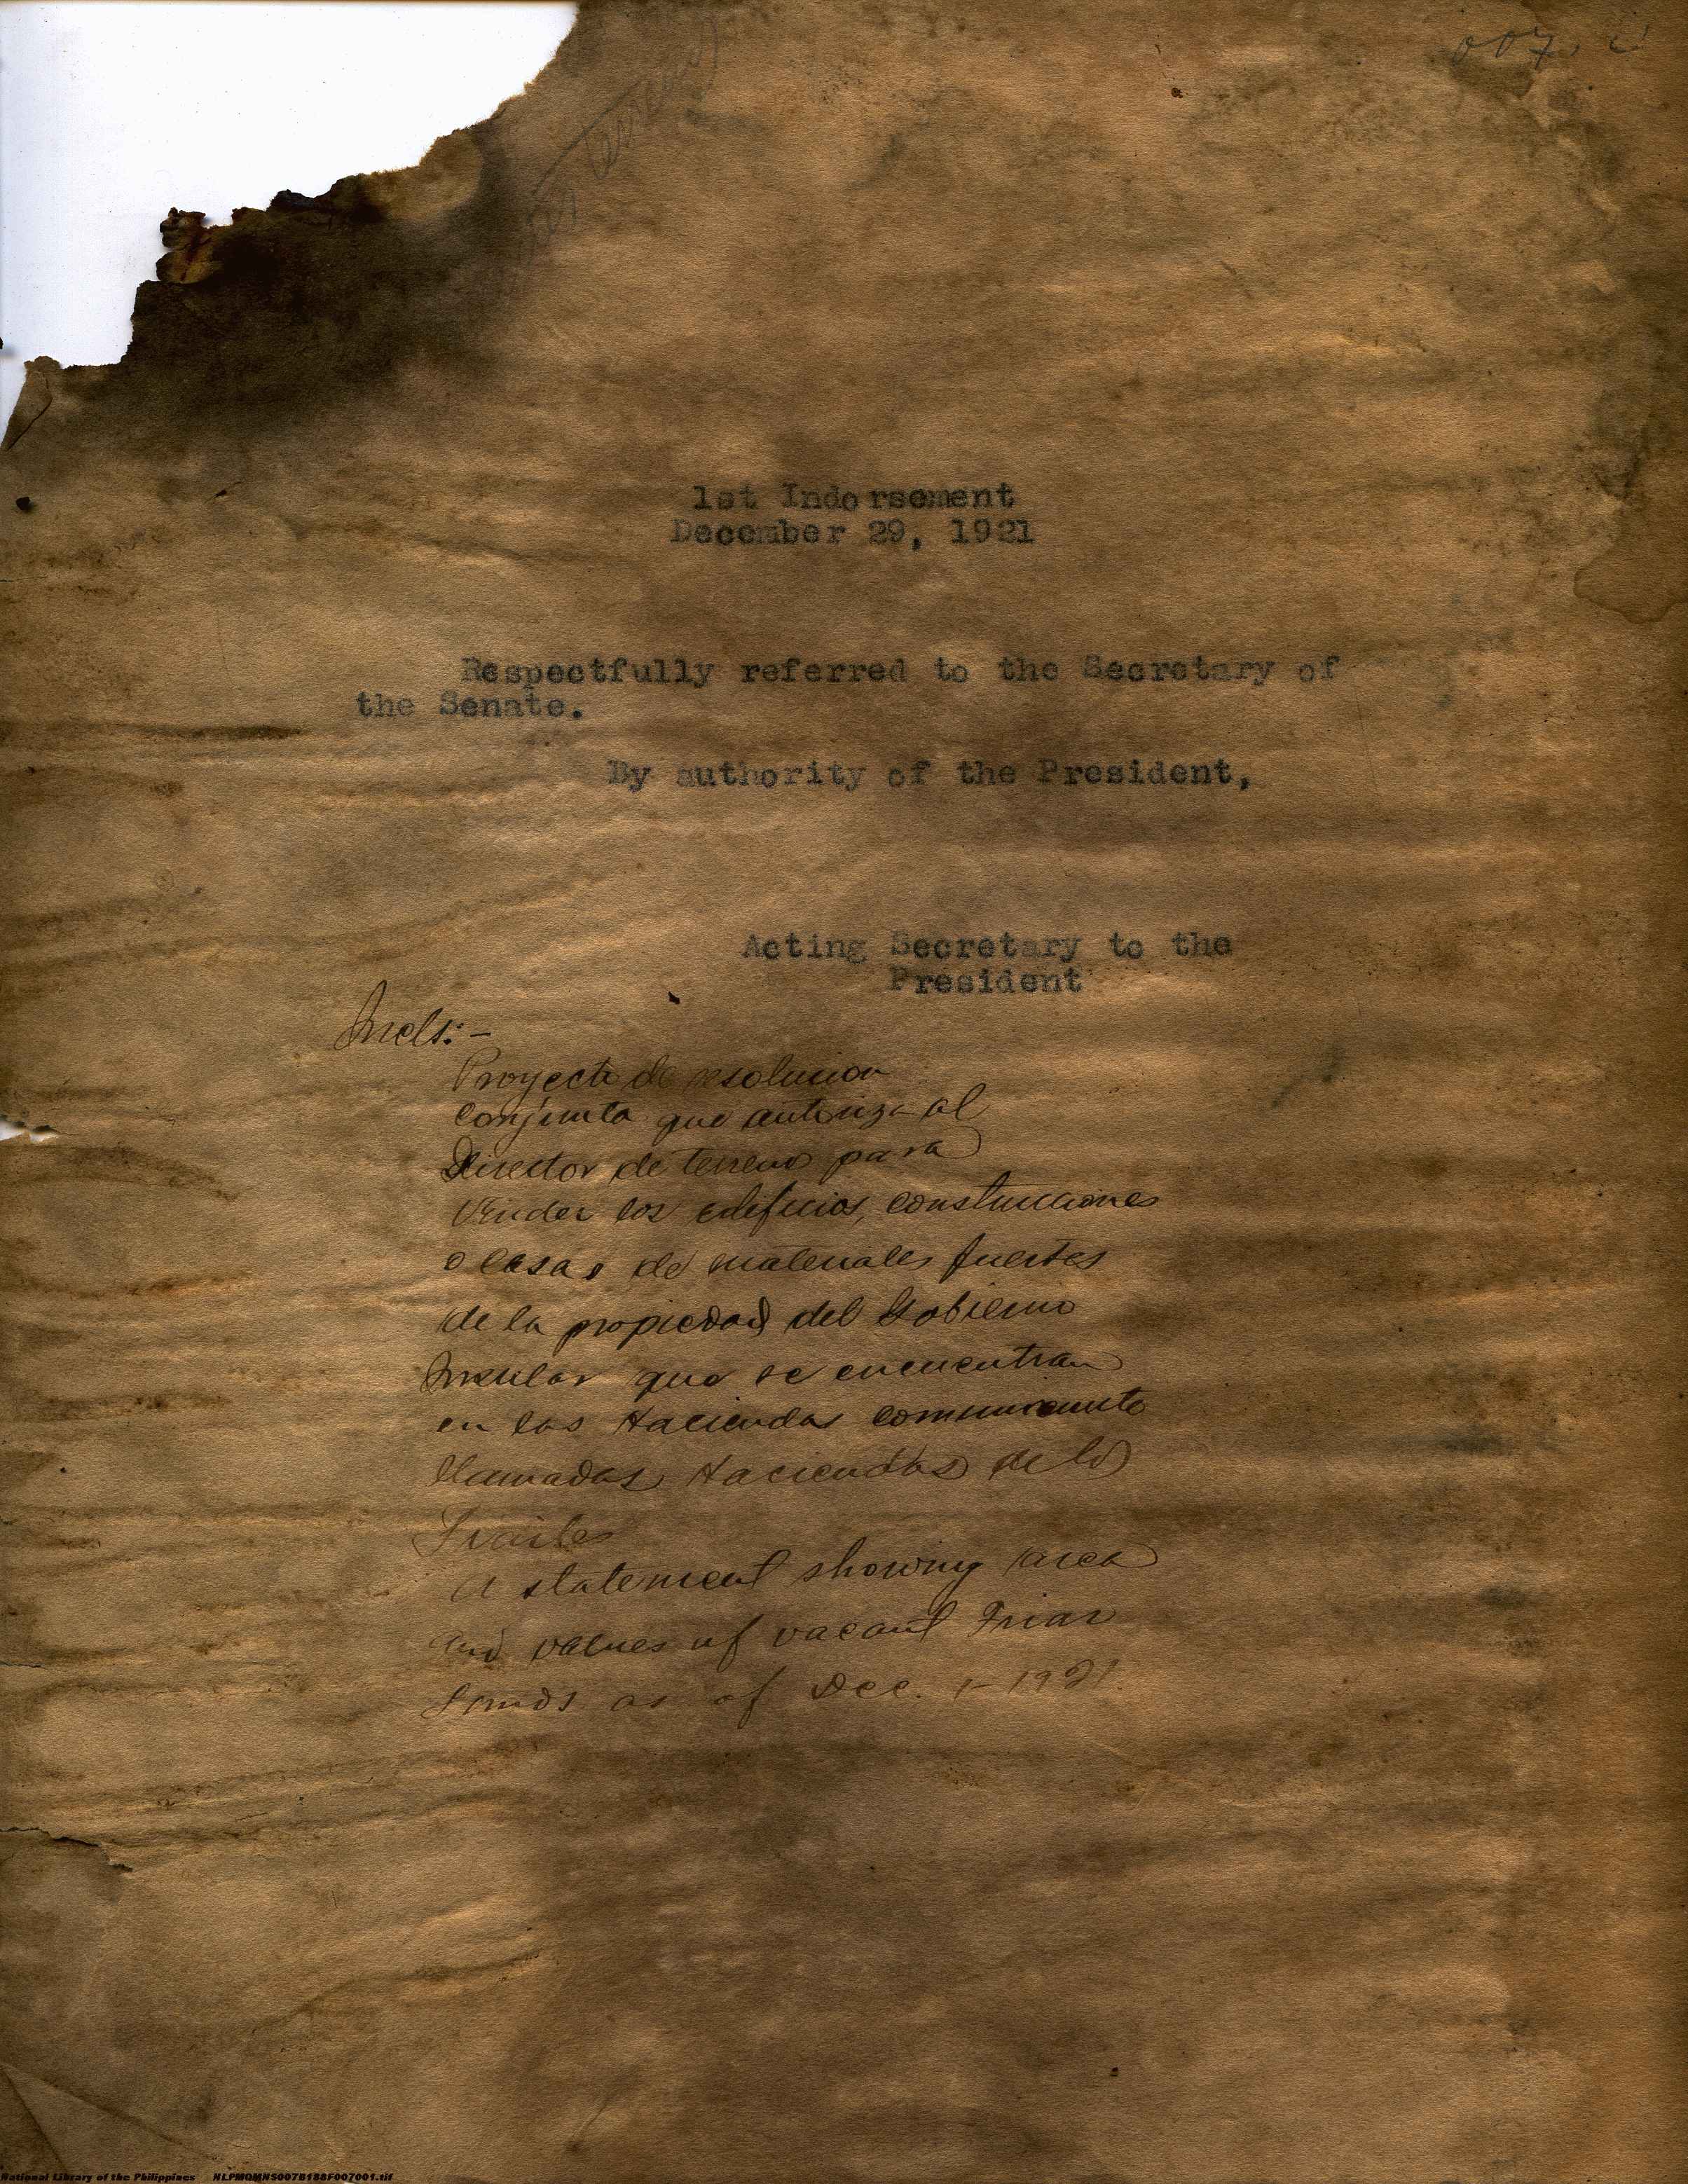 007.
terreno
1st Indorsement
December 29, 1921
Respectfully referred to the Secretary of
the Senate.
By authority of the President,
Acting Secretary to the
President
Incls:-
Proyecto de resolucion
conjunta que autoriza al
Director de terreno para
Vender los edificios, construcciones
o casas de materiales fuertes
de la propiedad del Gobierno
Insular que se encuentran
en las Haciendas comunmente
llamadas Haciendas de los
Frailes
A statement showing area
and values of vacant Friar
Lands as of Dec. 1-1921.
National Library of the Philippines NLPMQMNS007B188F007001.tif